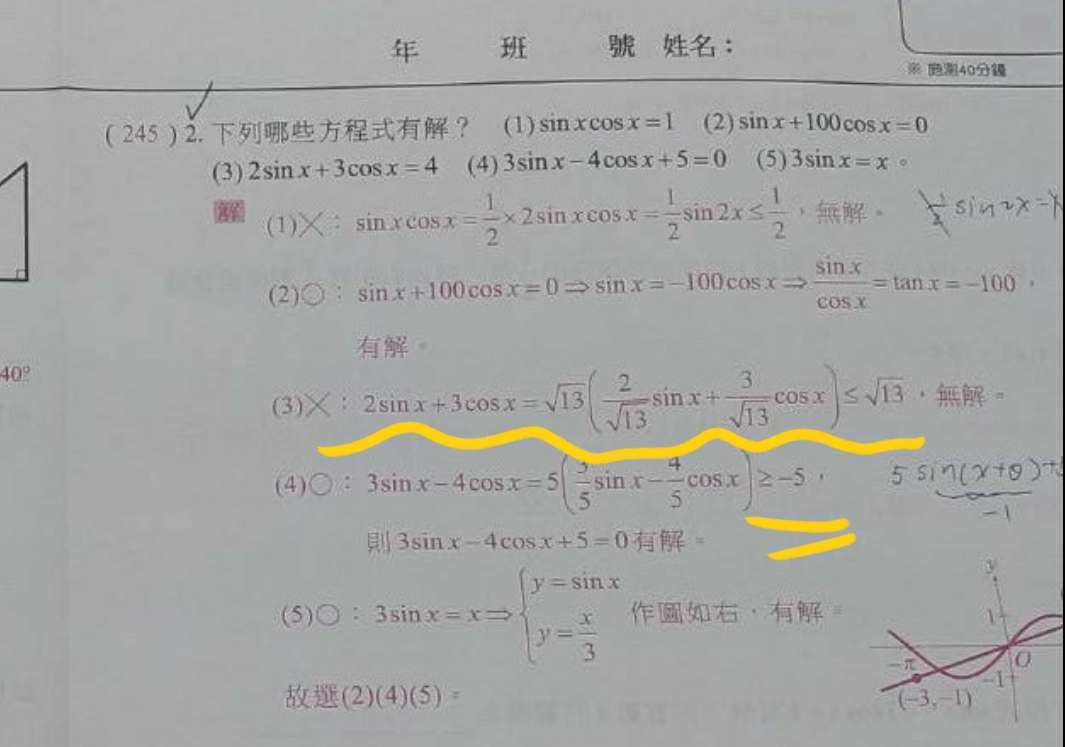 年 班 號 姓名：
※ 施測40分鐘
( 245 ) 2. 下列哪些方程式有解？ (1) sin x cos x = 1 (2) sin x + 100 cos x = 0
(3) 2 sin x + 3 cos x = 4 (4) 3 sin x − 4 cos x + 5 = 0 (5) 3 sin x = x。
解 (1)╳：sin x cos x = 1/2 × 2 sin x cos x = 1/2 sin 2x ≤ 1/2，無解。
(2)○：sin x + 100 cos x = 0 ⇒ sin x = −100 cos x ⇒ sin x / cos x = tan x = −100，
有解。
40?
(3)╳：2 sin x + 3 cos x = √13 ( 2/√13 sin x + 3/√13 cos x ) ≤ √13，無解。
(4)○：3 sin x − 4 cos x = 5 ( 3/5 sin x − 4/5 cos x ) ≥ −5，
5 sin(x+θ)+
−1
則 3 sin x − 4 cos x + 5 = 0 有解。
(5)○：3 sin x = x ⇒ { y = sin x
y = x/3
作圖如右，有解。
y
1
−π O
−1
(−3, −1)
故選(2)(4)(5)。